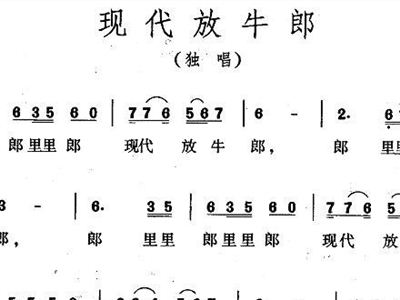 现代放牛郎
（独唱）
6 3 5 6 0 | 7 7 6 5 6 7 | 6 - | 2. 6
郎里里郎 现代 放牛郎， 郎 里里
3 - | 6. 3 5 | 6 3 5 6 0 | 7 7 6 5
郎， 郎 里里 郎里里郎 现代 放